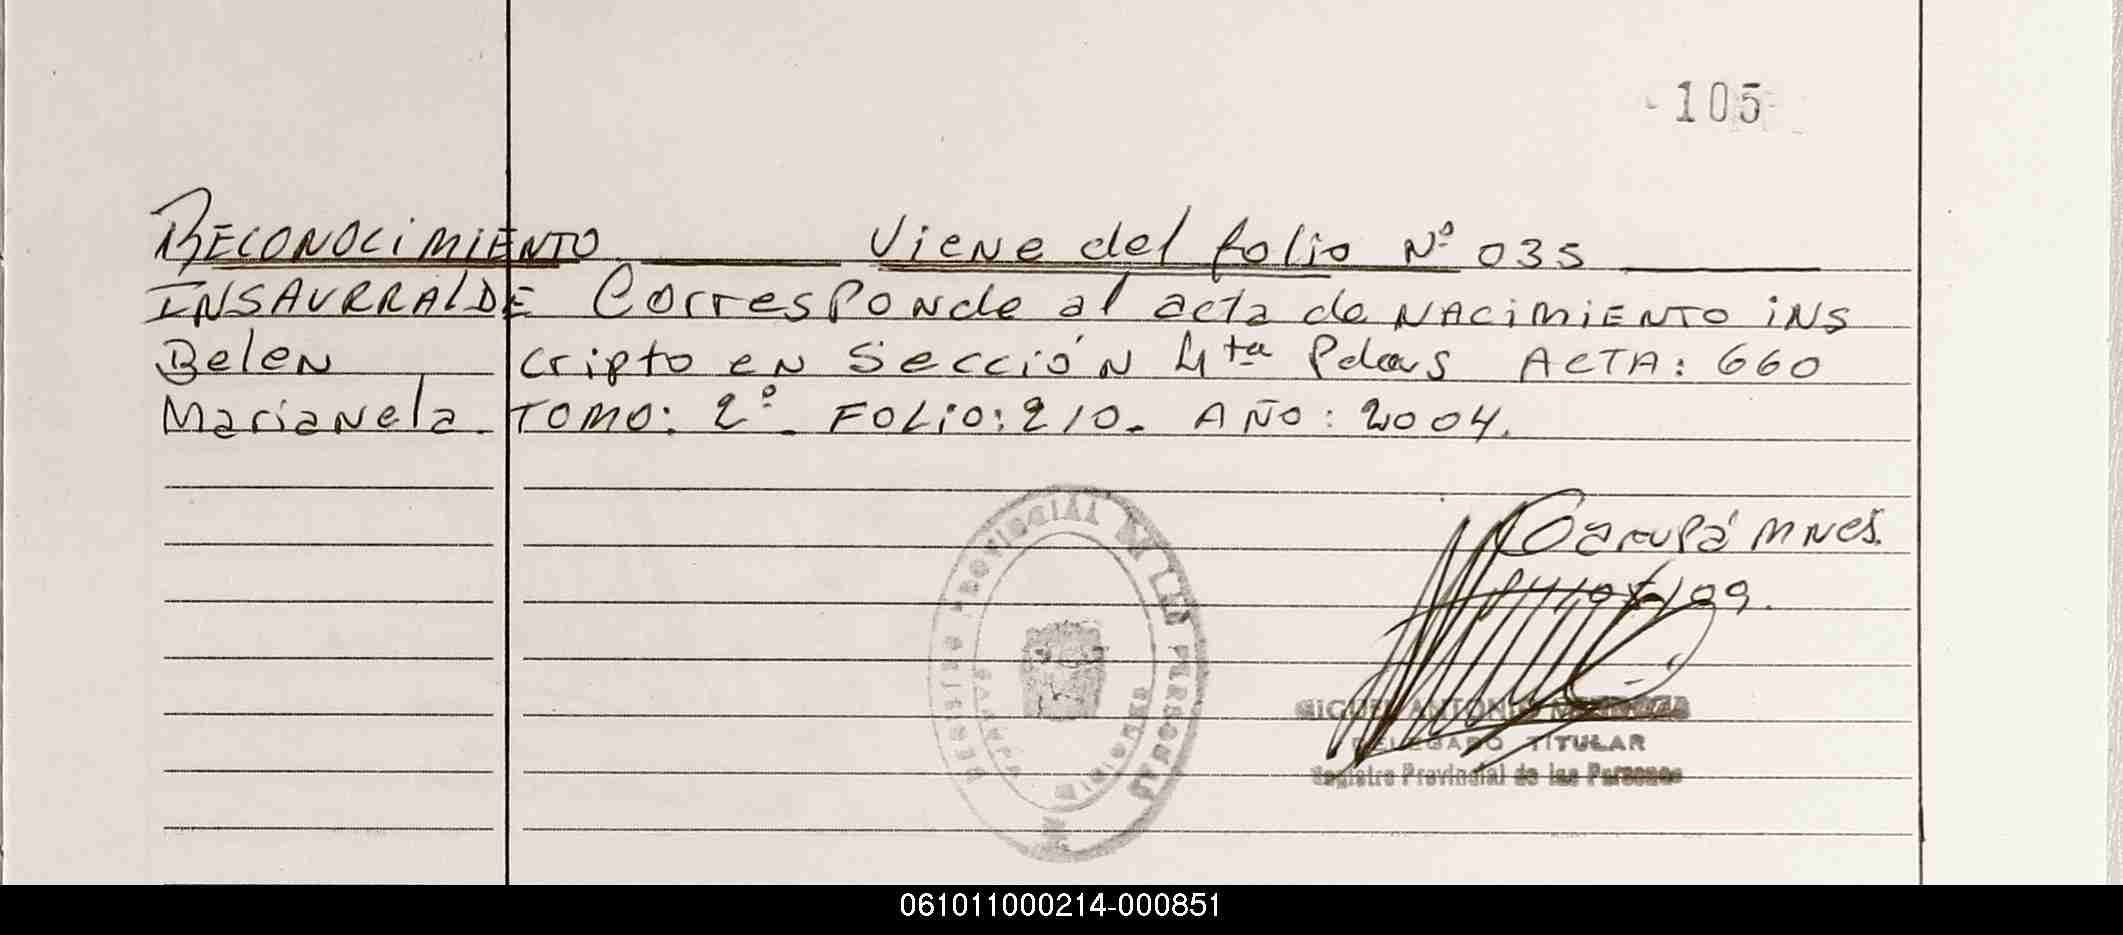 105
RECONOCIMIENTO Viene del folio Nº 035
INSAURRALDE Corresponde al acta de NACIMIENTO iNS
Belen cripto en Sección 4ta Pdas ACTA: 660
Marianela. TOMO: 2º. FOLIO: 210. AÑO: 2004.
Garupá MNES.
REGISTRO PROVINCIAL DE LAS PERSONAS
MIGUEL ANTONIO
DELEGADO TITULAR
Registro Provincial de las Personas
061011000214-000851